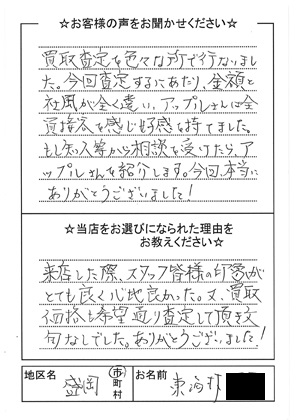 ☆お客様の声をお聞かせください☆
買取査定を色々な所で行かいまし
た。今回査定するにあたり、金額と
社風が全く違い、アップルさんは全
員接客を感じ好感を持てました。
もし知人等から相談を受けたら、ア
ップルさんを紹介します。今回、本当に
ありがとうございました！
☆当店をお選びになられた理由を
お教えください☆
来店した際、スタッフ皆様の印象が
とても良く心地良かった。又、買取
価格も希望通り査定して頂き文
句なしでした。ありがとうございました！
地区名 盛岡 市町村 お名前 東海林